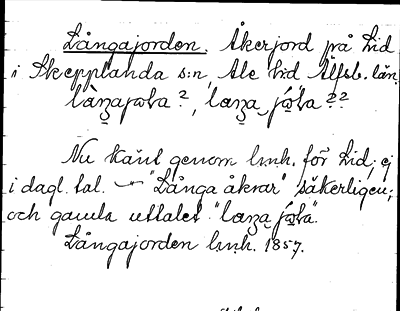 Långajorden. Åkerjord på Lid
i Skepplanda s:n, Ale hd Älfsb. län.
Nu känt genom lmh. för Lid; ej
i dagl. tal. — "Långa åkrar" säkerligen;
och gamla uttalet
Långajorden lmh. 1857.